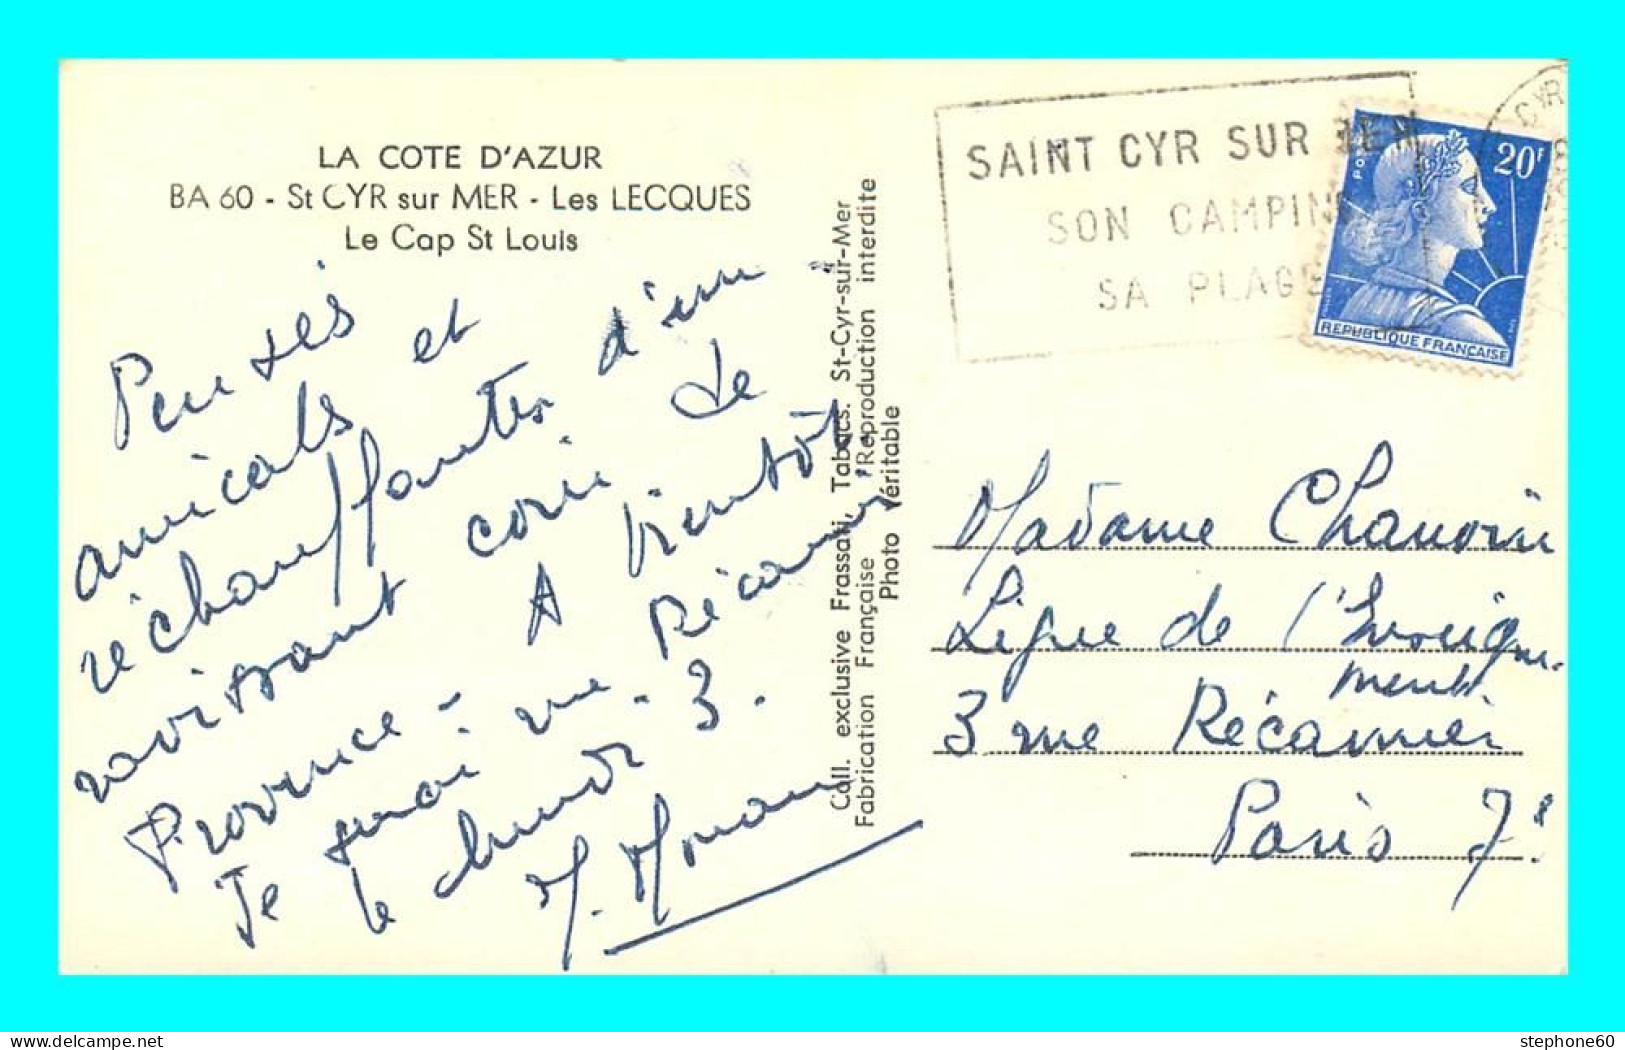 LA COTE D'AZUR
BA 60 - St CYR sur MER - Les LECQUES
Le Cap St Louis
Pensées
amicales et
réchauffantes d'un
ravissant coin de
Provence - A bientôt,
Je serai rue Récamier
le lundi 3.
Coll. exclusive Frassati, Tabacs. St-Cyr-sur-Mer
Fabrication Française Reproduction interdite
Photo Véritable
SAINT CYR SUR MER
SON CAMPING
SA PLAGE
CYR
POSTES
20F
REPUBLIQUE FRANÇAISE
Madame Chauvin
Ligue de l'Enseigne-
ment.
3 rue Récamier
Paris 7e
stephone60